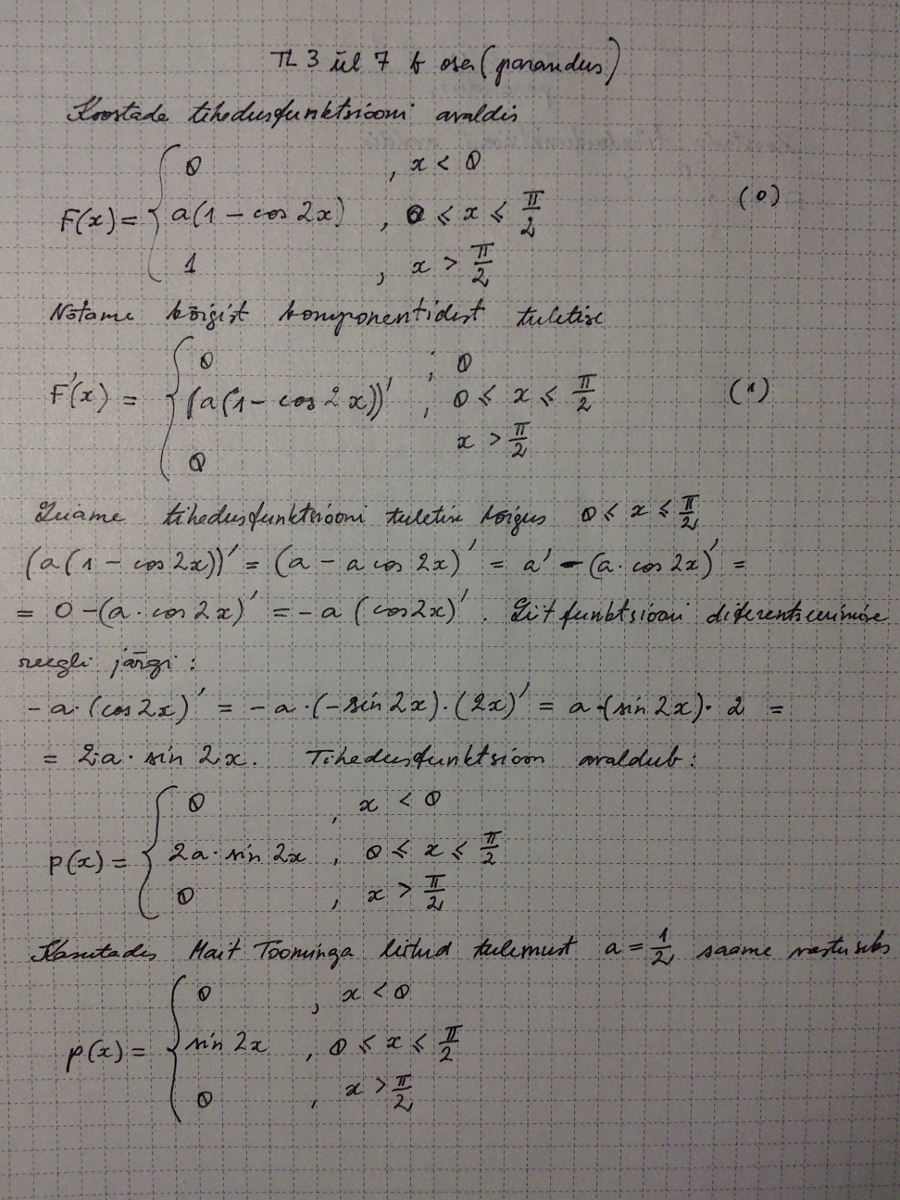 TL 3 ül 7 b osa (parandus)
Koostada tihedusfunktsiooni avaldis
0 , x < 0
F(x) = { a(1 - cos 2x) , 0 ⩽ x ⩽ π/2 (0)
1 , x > π/2
Võtame kõigist komponentidest tuletise
0 ; 0
F'(x) = { (a(1 - cos 2x))' , 0 ⩽ x ⩽ π/2 (1)
0 x > π/2
Leiame tihedusfunktsiooni tuletise kõigus 0 ⩽ x ⩽ π/2
(a(1 - cos 2x))' = (a - a cos 2x)' = a' - (a · cos 2x)' =
= 0 - (a · cos 2x)' = - a (cos 2x)' . Liitfunktsiooni diferentseerimise
reegli järgi :
- a · (cos 2x)' = - a · (- sin 2x) · (2x)' = a · (sin 2x) · 2 =
= 2a · sin 2x. Tihedusfunktsioon avaldub :
0 , x < 0
p(x) = { 2a · sin 2x , 0 ⩽ x ⩽ π/2
0 , x > π/2
Kasutades Mait Toominga leitud tulemust a = 1/2, saame vastuseks
0 , x < 0
p(x) = { sin 2x , 0 ⩽ x ⩽ π/2
0 , x > π/2